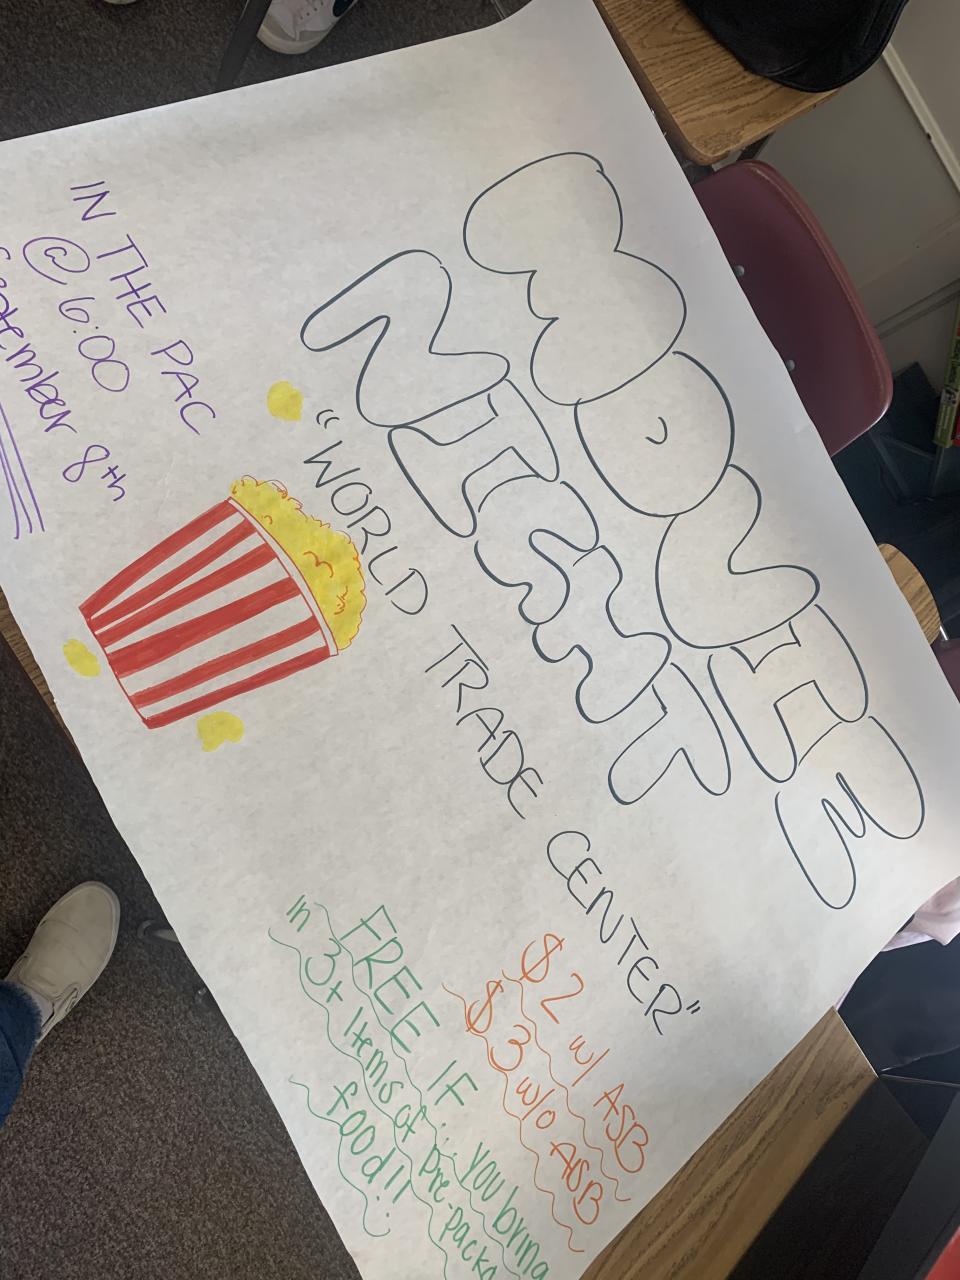 MOVIE
NIGHT
"WORLD TRADE CENTER"
$2 w/ ASB
$3 w/o ASB
IN THE PAC
@ 6:00
8th
FREE IF... you bring
in 3+ Items of pre-
food!!